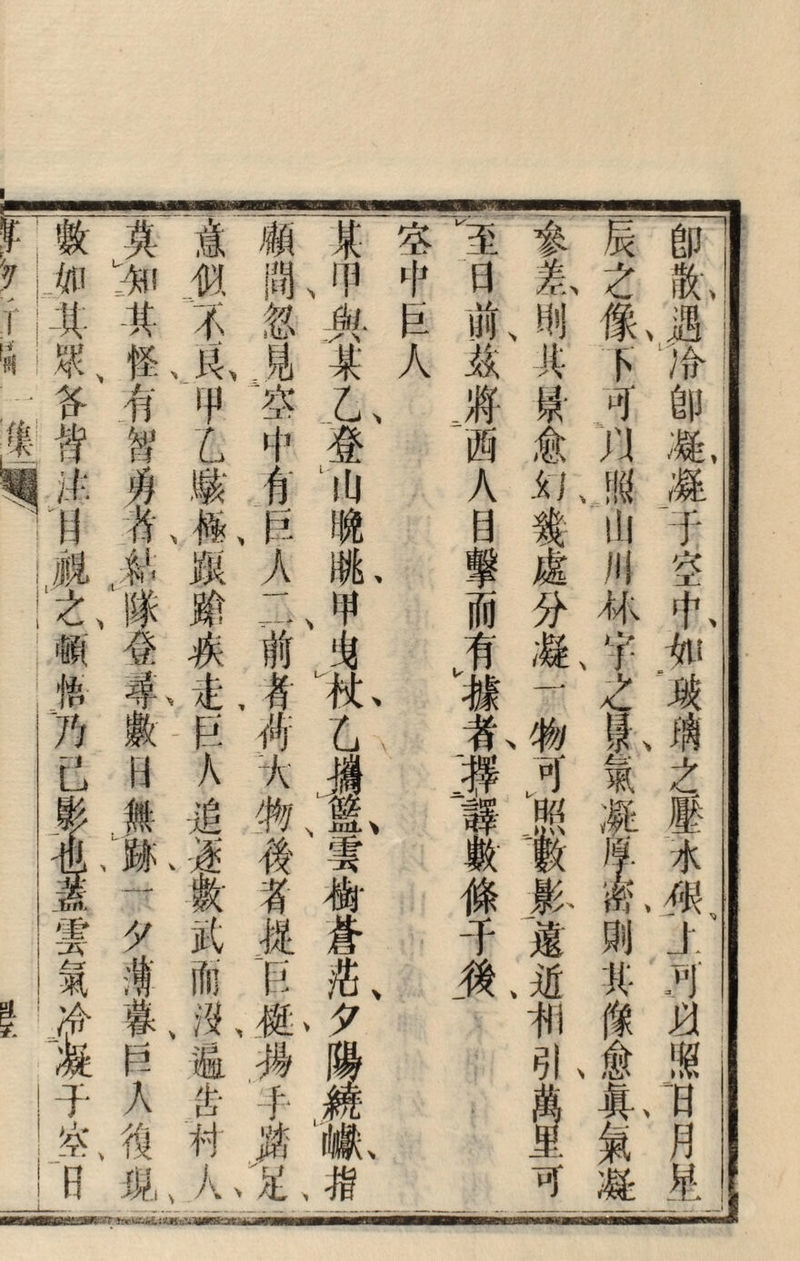 卽散、遇冷卽凝、凝于空中、如玻璃之壓水銀、上可以照日月星
辰之像、下可以照山川林宇之景、氣凝厚密、則其像愈眞、氣凝
參差、則其景愈幻、幾處分凝、一物可照數影、遠近相引、萬里可
至目前、茲將西人目擊而有據者、擇譯數條于後、
空中巨人
某甲與某乙、登山晚眺、甲曳杖、乙攜籃、雲樹蒼茫、夕陽繞巘、指
顧間、忽見空中有巨人二、前者荷大物、後者提巨梃、揚手踏足、
意似不良、甲乙駭極、踉蹌疾走、巨人追逐數武而沒、遍告村人、
莫知其怪、有智勇者、結隊登尋、數日無跡、一夕薄暮、巨人復現、
數如其眾、各皆注目視之、頓悟乃己影也、蓋雲氣冷凝于空、日
集